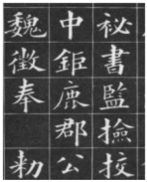 祕書監撿挍
中鉅鹿郡公
魏徵奉勅